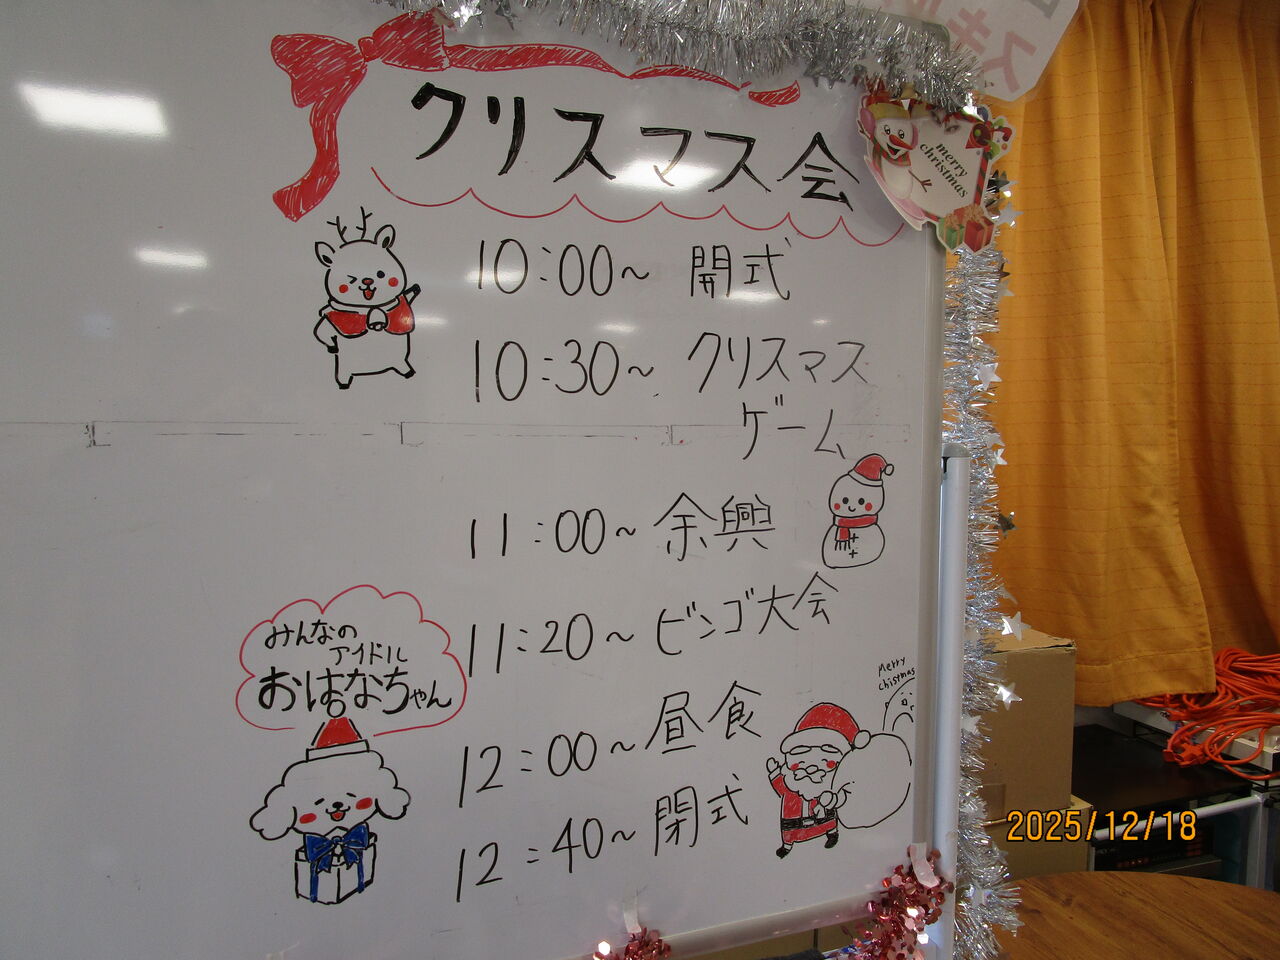 クリスマス会
merry
christmas
10:00～ 開式
10:30～ クリスマス
ゲーム
11:00～ 余興
11:20～ ビンゴ大会
みんなの
アイドル
おはなちゃん
12:00～ 昼食
Merry
chistmas
12:40～ 閉式
2025/12/18